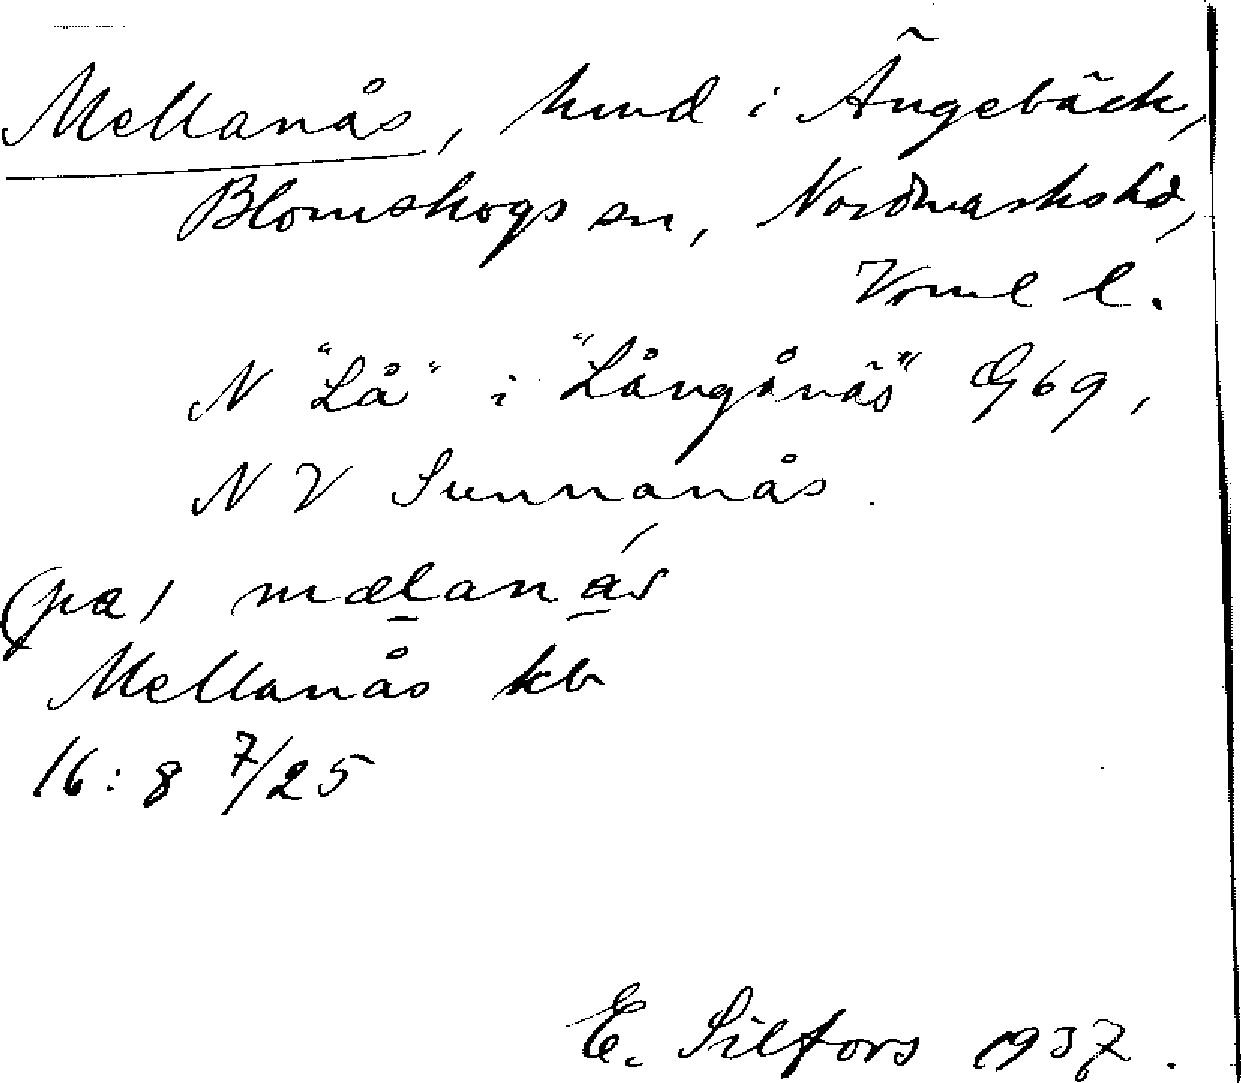 Mellanås, hmd i Ängebäck,
Blomskogs sn, Nordmarks hd,
Vrml l.
N "Lå" i "Långånäs" G69,
NV Sunnanås.
(pa) mælanås
Mellanås kb
16:8 7/25
E. Silfors 1937.